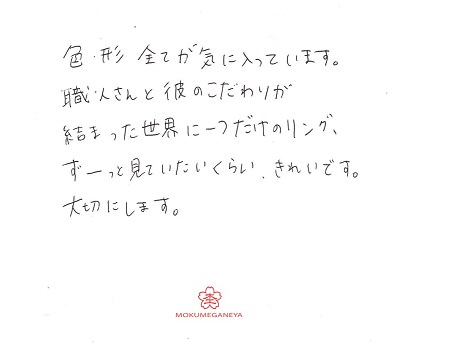 色・形 全てが気に入っています。
職人さんと彼のこだわりが
結まった世界に一つだけのリング、
ずーっと見ていたいくらい、きれいです。
大切にします。
MOKUMEGANEYA